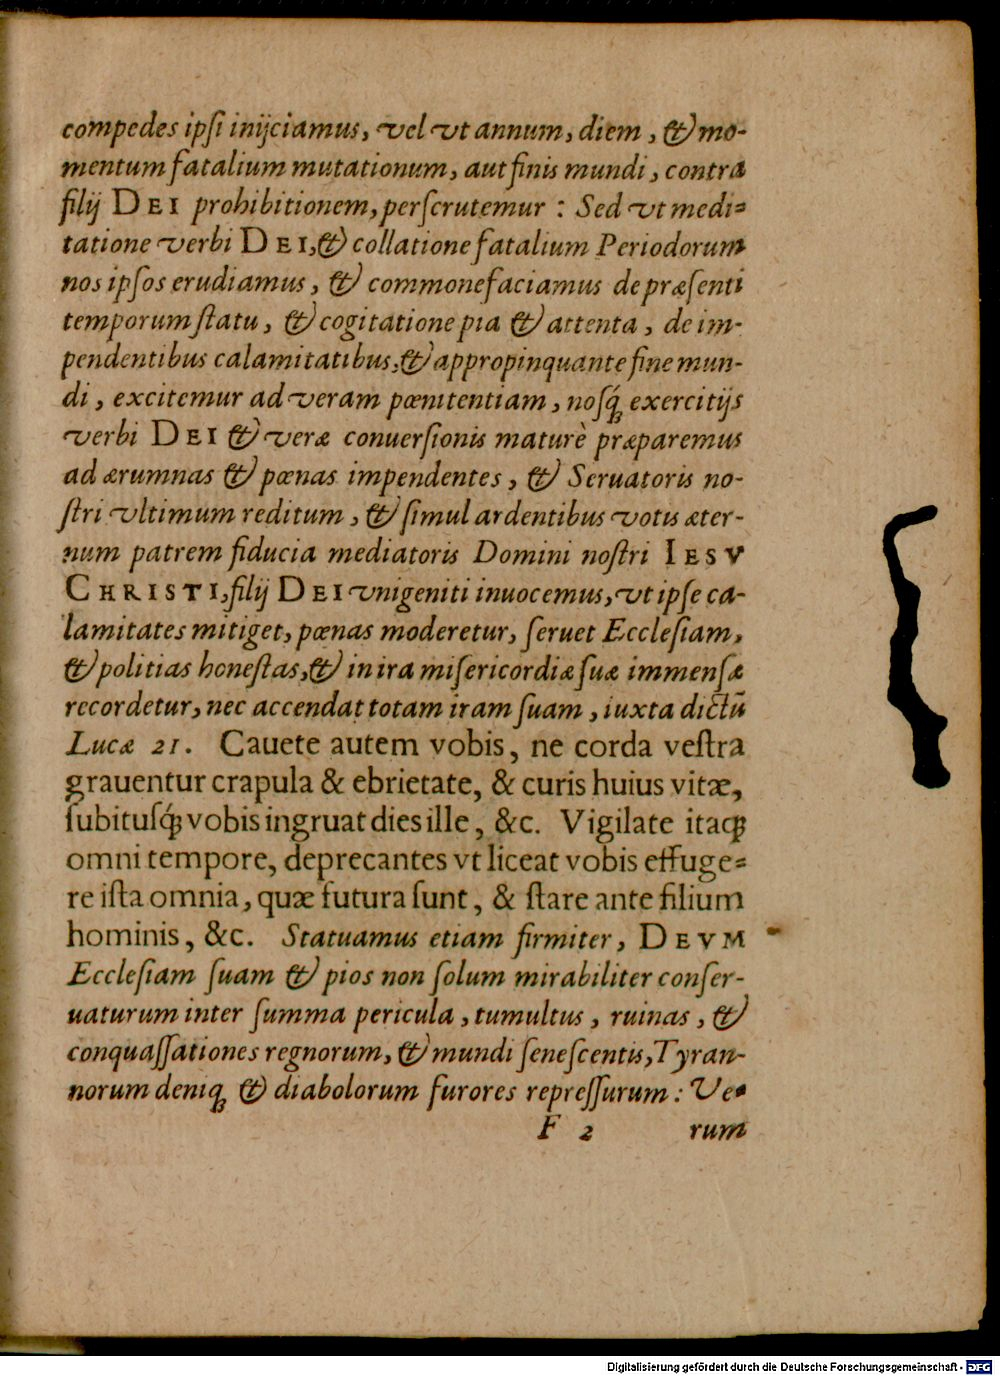 compedes ipſi inijciamus, vel vt annum, diem, & mo-
mentum fatalium mutationum, aut finis mundi, contra
filij DEI prohibitionem, perſcrutemur: Sed vt medi-
tatione verbi DEI, & collatione fatalium Periodorum
nos ipſos erudiamus, & commonefaciamus de præſenti
temporum ſtatu, & cogitatione pia & attenta, de im-
pendentibus calamitatibus, & appropinquante fine mun-
di, excitemur ad veram pœnitentiam, noſq́ꝫ exercitijs
verbi DEI & veræ conuerſionis maturè præparemus
ad ærumnas & pœnas impendentes, & Seruatoris no-
ſtri vltimum reditum, & ſimul ardentibus votis æter-
num patrem fiducia mediatoris Domini noſtri IESV
CHRISTI, filij DEI vnigeniti inuocemus, vt ipſe ca-
lamitates mitiget, pœnas moderetur, ſeruet Eccleſiam,
& politias honeſtas, & in ira miſericordiæ ſuæ immenſæ
recordetur, nec accendat totam iram ſuam, iuxta dictū
Lucæ 21. Cauete autem vobis, ne corda veſtra
grauentur crapula & ebrietate, & curis huius vitæ,
ſubituſq́ꝫ vobis ingruat dies ille, &c. Vigilate itaqꝫ
omni tempore, deprecantes vt liceat vobis effuge-
re iſta omnia, quæ futura ſunt, & ſtare ante filium
hominis, &c. Statuamus etiam firmiter, DEVM
Eccleſiam ſuam & pios non ſolum mirabiliter conſer-
uaturum inter ſumma pericula, tumultus, ruinas, &
conquaſſationes regnorum, & mundi ſeneſcentis, Tyran-
norum deniqꝫ & diabolorum furores repreſſurum: Ve-
F 2 rum
Digitalisierung gefördert durch die Deutsche Forschungsgemeinschaft - DFG